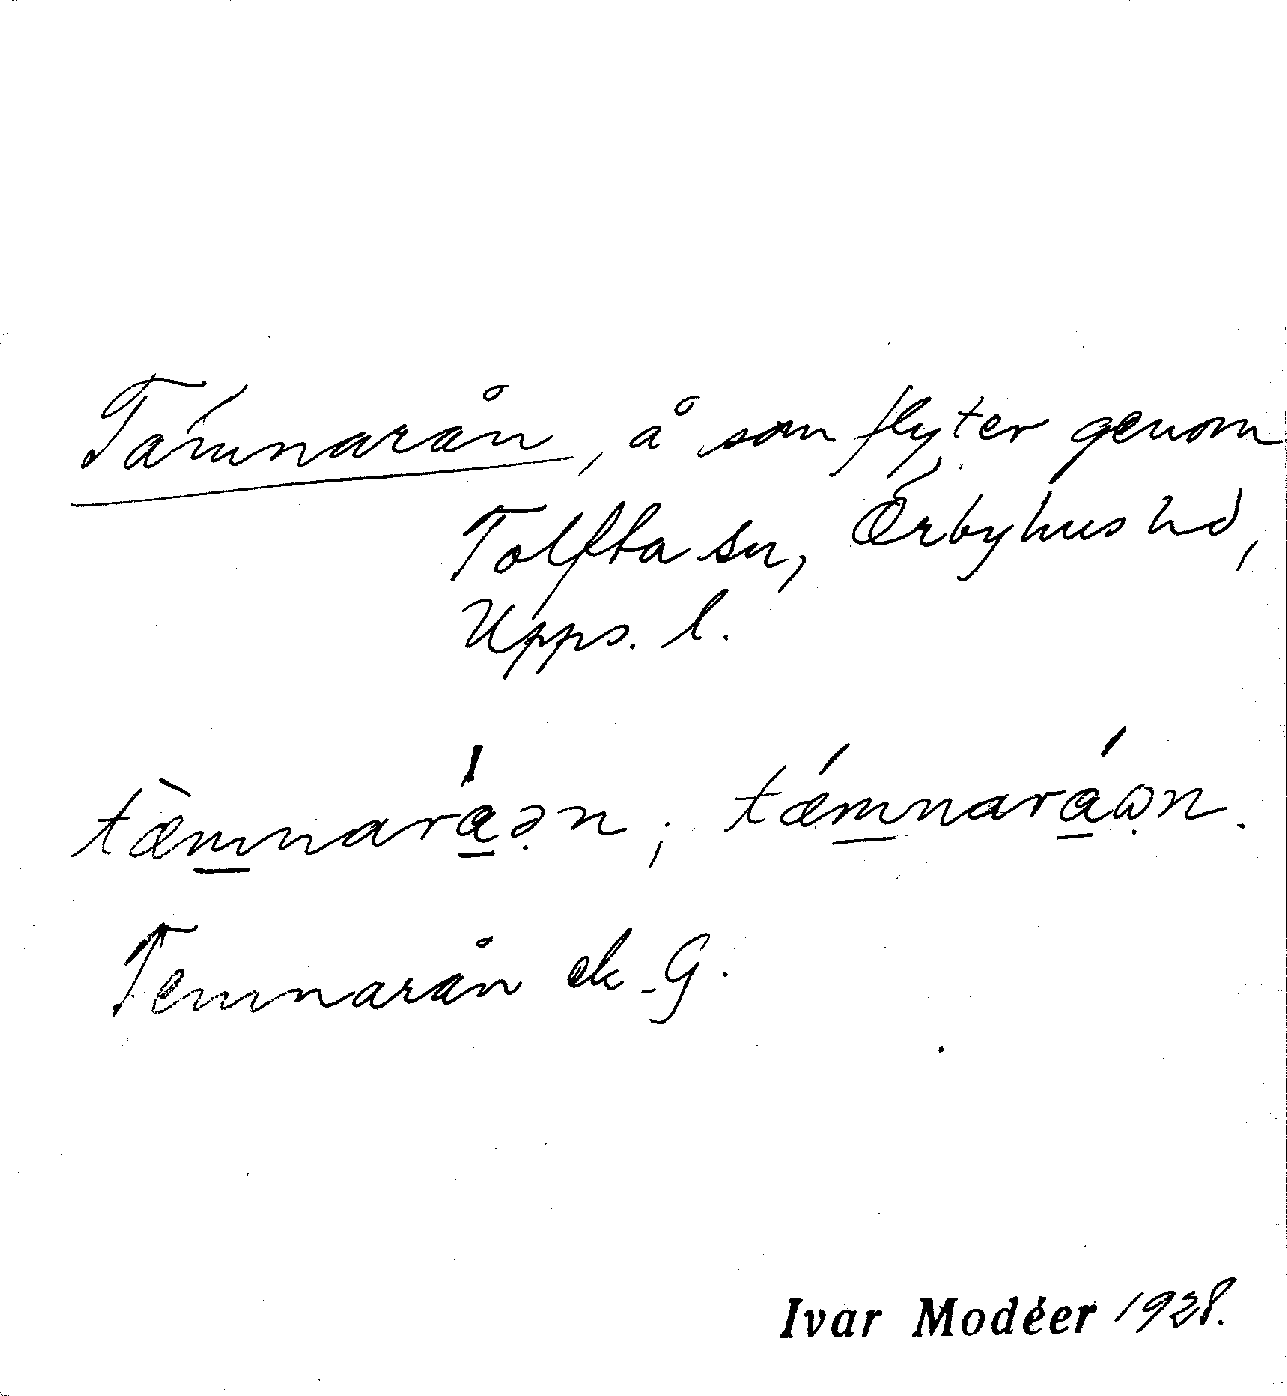 Tämnarån, å som flyter genom
Tolfta sn, Örbyhus hd,
Upps. l.
tæ̀m̲nará̲ə̣n; tǽm̲nará̲ω̣n.
Temnarån ek. G.
Ivar Modéer 1928.